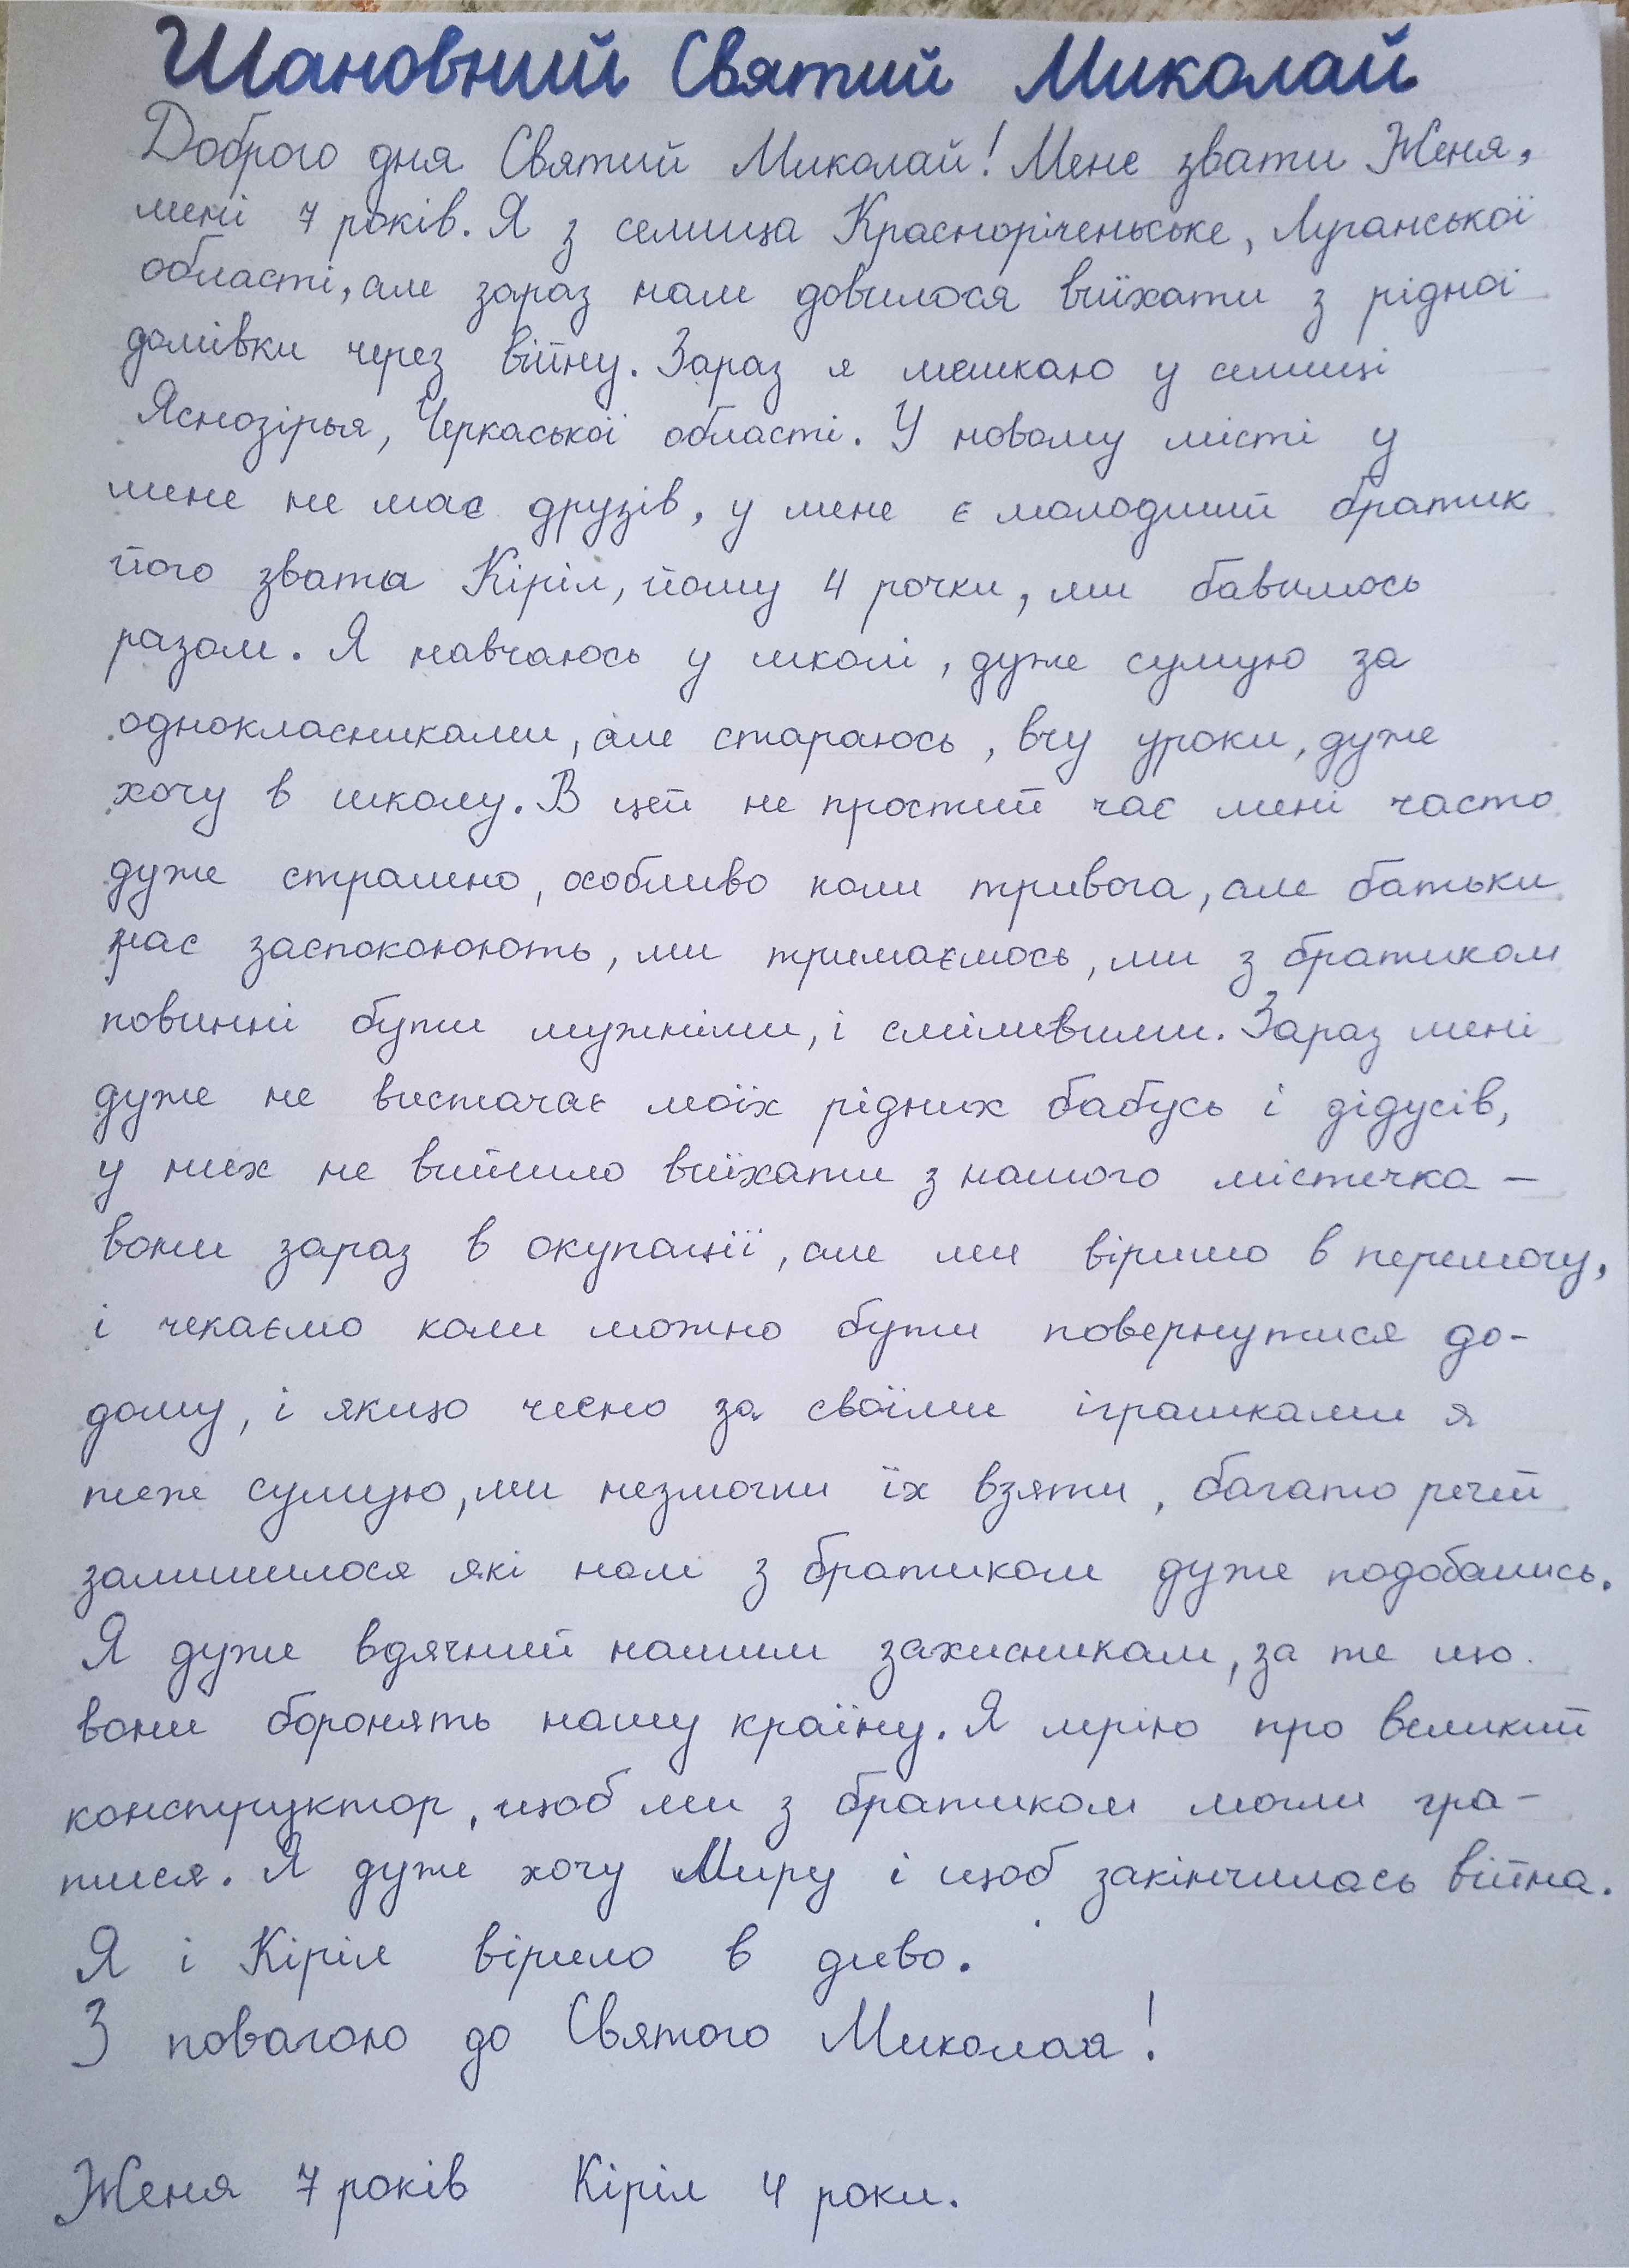 Шановний Святий Миколай
Доброго дня Святий Миколай! Мене звати Женя,
мені 7 років. Я з селища Красноріченьське, Луганської
області, але зараз нам довилося виїхати з рідної
домівки через війну. Зараз я мешкаю у селищі
Яснозірья, Черкаської області. У новому місті у
мене не має друзів, у мене є молодший братик
його звата Кіріл, йому 4 рочки, ми бавимось
разом. Я навчаюсь у школі, дуже сумую за
однокласниками, але стараюсь, вчу уроки, дуже
хочу в школу. В цей не простий час мені часто
дуже страшно, особливо коли тривога, але батьки
нас заспокоюють, ми тримаємось, ми з братиком
повинні бути мужніми, і сміливими. Зараз мені
дуже не вистачає моїх рідних бабусь і дідусів,
у них не вийшло виїхати з нашого містечка –
вони зараз в окупації, але ми віримо в перемогу,
і чекаємо коли можно бути повернутися до-
дому, і якщо чесно за своїми іграшками я
теж сумую, ми незмогли їх взяти, багато речей
залишилося які нам з братиком дуже подобались.
Я дуже вдячний нашим захисникам, за те що
вони боронять нашу країну. Я мрію про великий
конструктор, щоб ми з братиком могли гра-
тися. Я дуже хочу Миру і щоб закінчилась війна.
Я і Кіріл віримо в диво.
З повагою до Святого Миколая!
Женя 7 років Кіріл 4 роки.